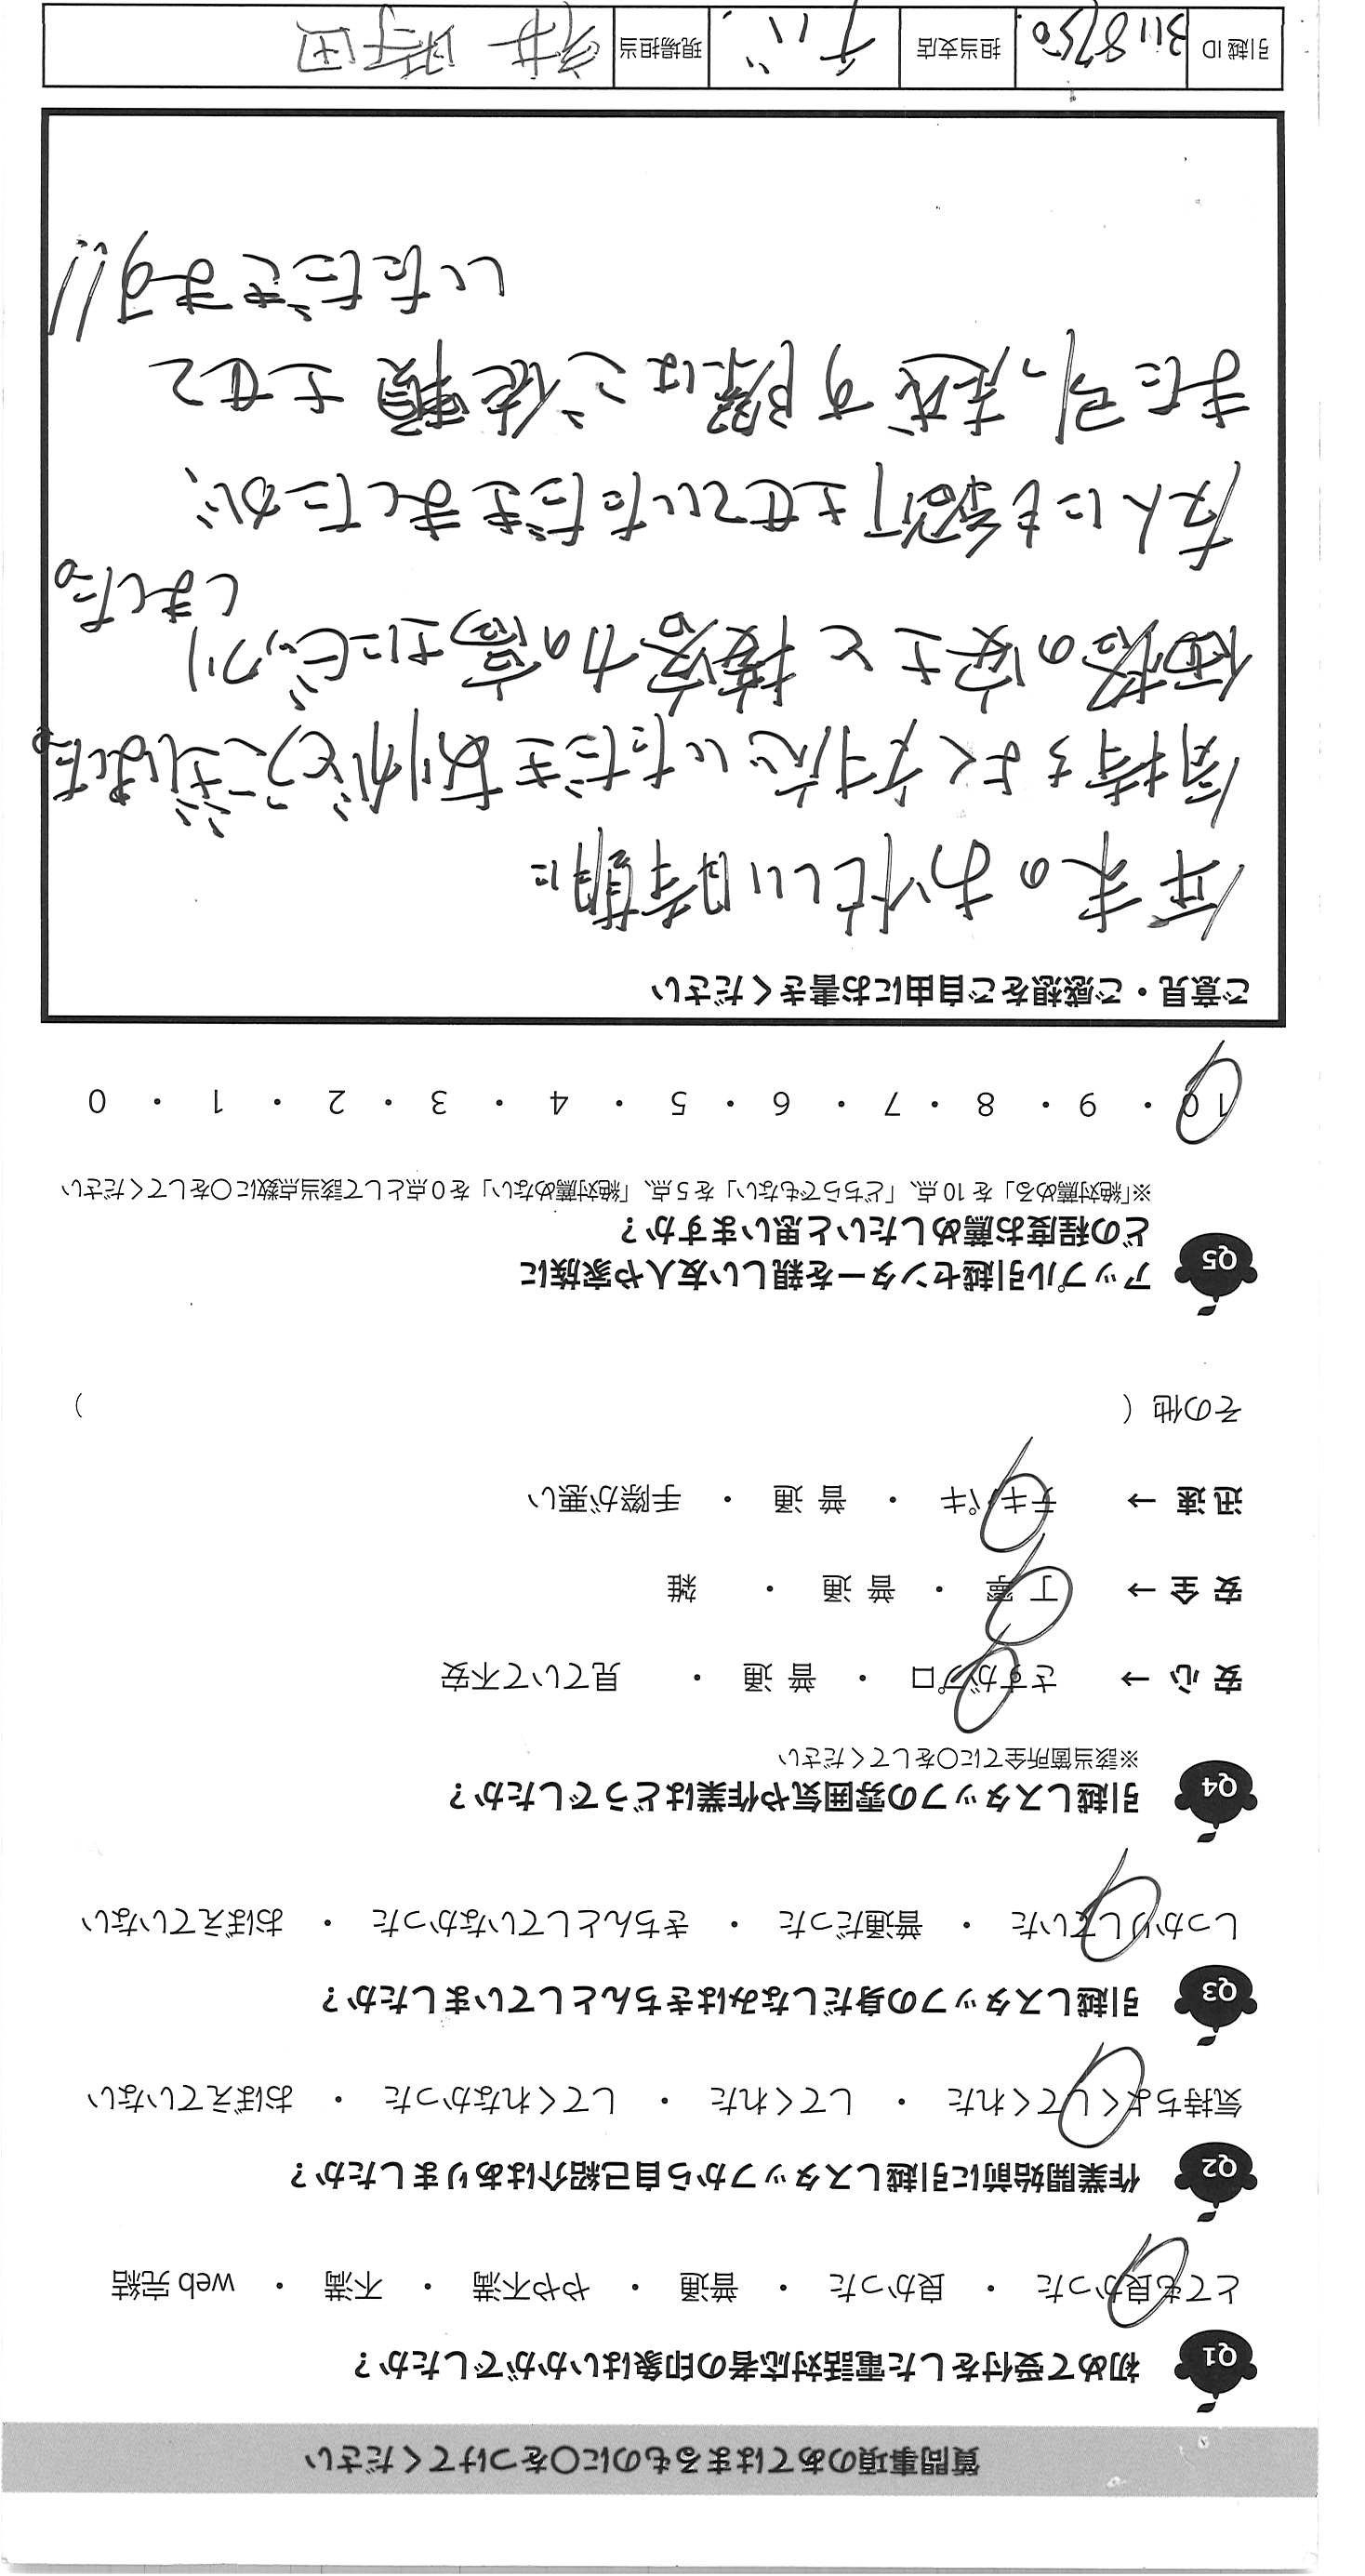 質問事項のあてはまるものに○をつけてください
Q1 初めて受付をした電話対応者の印象はいかがでしたか？
とても良かった ・ 良かった ・ 普通 ・ やや不満 ・ 不満 ・ web 完結
Q2 作業開始前に引越しスタッフから自己紹介はありましたか？
気持ちよくしてくれた ・ してくれた ・ してくれなかった ・ おぼえていない
Q3 引越しスタッフの身だしなみはきちんとしていましたか？
しっかりしていた ・ 普通だった ・ きちんとしていなかった ・ おぼえていない
Q4 引越しスタッフの雰囲気や作業はどうでしたか？
※該当箇所全てに○をしてください
安 心 → さすがプロ ・ 普 通 ・ 見ていて不安
安 全 → 丁 寧 ・ 普 通 ・ 雑
迅 速 → テキパキ ・ 普 通 ・ 手際が悪い
その他（ ）
Q5 アップル引越センターを親しい友人や家族に
どの程度お薦めしたいと思いますか？
※「絶対薦める」を 10 点、「どちらでもない」を 5 点、「絶対薦めない」を 0 点として該当点数に○をしてください
10 ・ 9 ・ 8 ・ 7 ・ 6 ・ 5 ・ 4 ・ 3 ・ 2 ・ 1 ・ 0
ご意見・ご感想をご自由にお書きください
年末のお忙しい時期に
気持ちよく対応いただきありがとうございました。
価格の安さと接客力の高さにビックリ
しました。
友人にも紹介させていただきましたが、
また引っ越す際はご依頼させて
いただきます!!
引越 ID 3118750 担当支店 千バ 現場担当